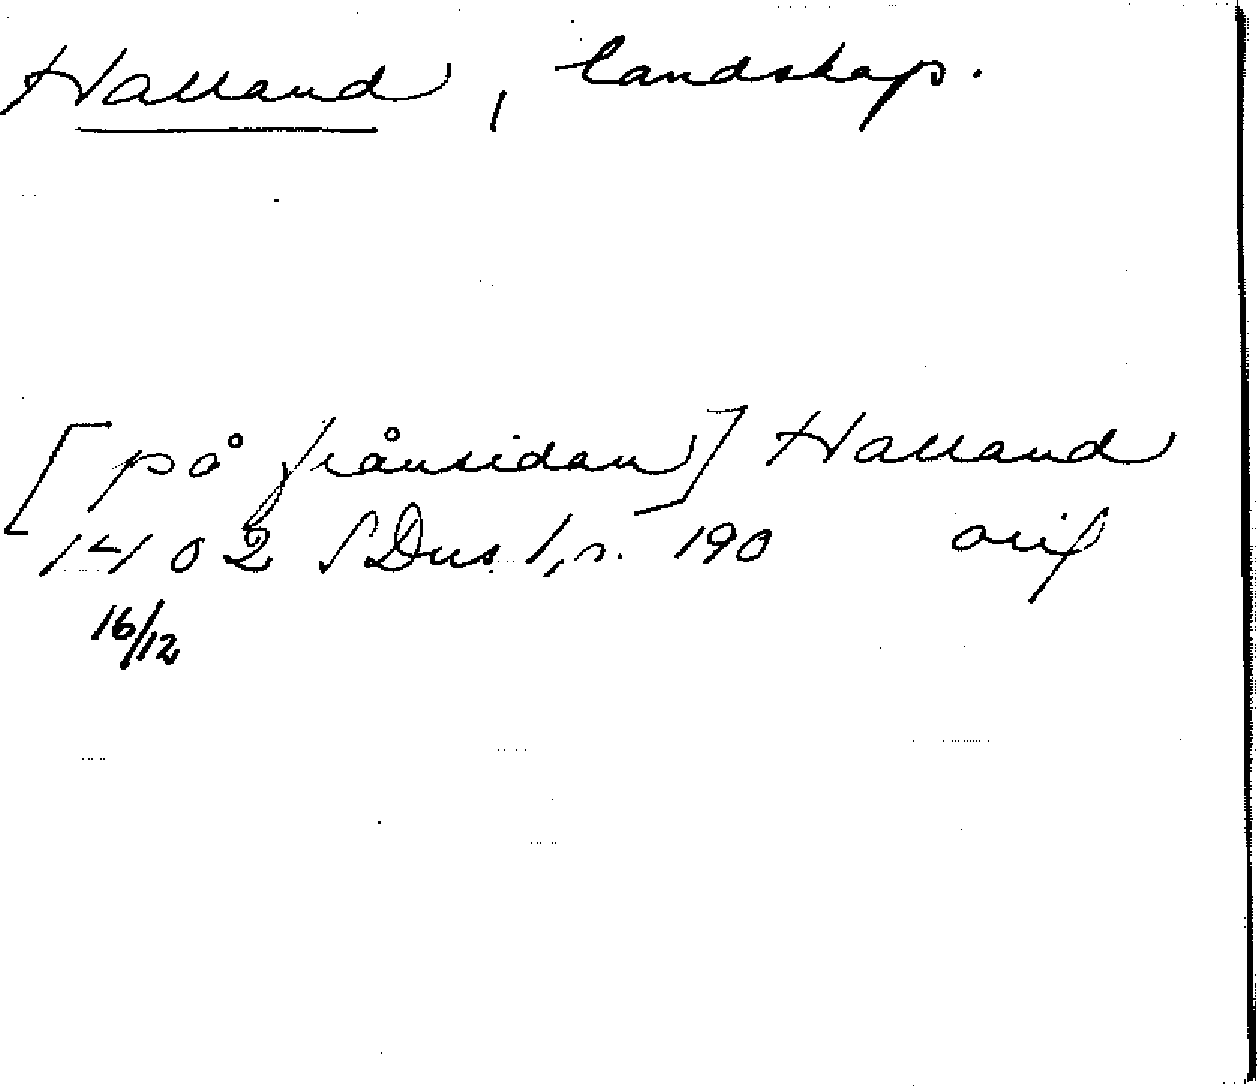 Halland, landskap.
[på frånsidan] Halland
1402 SDns 1, s. 190 orig
16/12